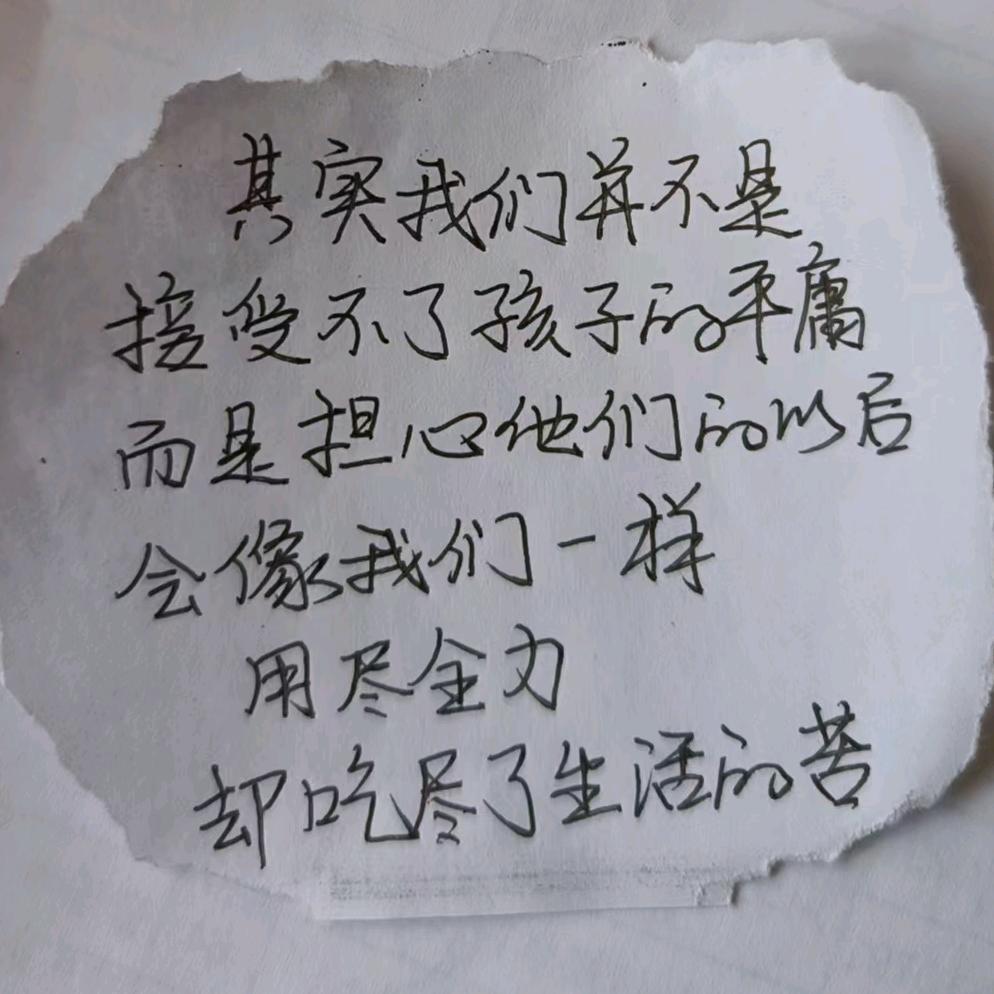 其实我们并不是
接受不了孩子的平庸
而是担心他们的以后
会像我们一样
用尽全力
却吃尽了生活的苦